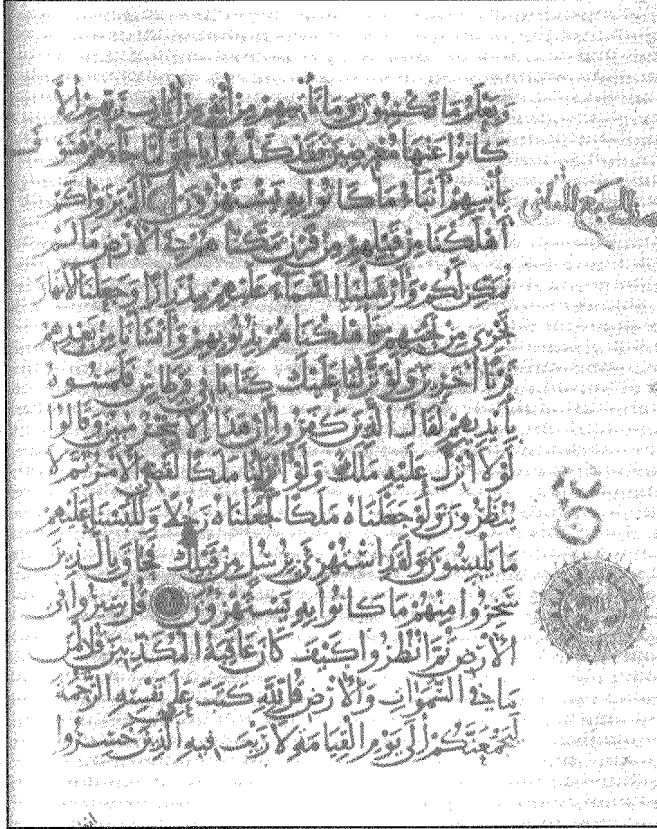 ويعلم ما تكسبون وما تأتيهم من آية من آيات ربهم إلا
كانوا عنها معرضين فقد كذبوا بالحق لما جاءهم فسوف
يأتيهم أنباء ما كانوا به يستهزؤن ألم يروا كم
السبع الثاني
أهلكنا من قبلهم من قرن مكناهم في الأرض ما لم
نمكن لكم وأرسلنا السماء عليهم مدرارا وجعلنا الأنهار
تجري من تحتهم فأهلكناهم بذنوبهم وأنشأنا من بعدهم
قرنا آخرين ولو نزلنا عليك كتابا في قرطاس فلمسوه
بأيديهم لقال الذين كفروا إن هذا إلا سحر مبين وقالوا
لولا أنزل عليه ملك ولو أنزلنا ملكا لقضي الأمر ثم لا
ينظرون ولو جعلناه ملكا لجعلناه رجلا وللبسنا عليهم
ما يلبسون ولقد استهزئ برسل من قبلك فحاق بالذين
سخروا منهم ما كانوا به يستهزؤن قل سيروا في
الأرض ثم انظروا كيف كان عاقبة المكذبين قل لمن
ما في السموات والأرض قل لله كتب على نفسه الرحمة
ليجمعنكم إلى يوم القيامة لا ريب فيه الذين خسروا